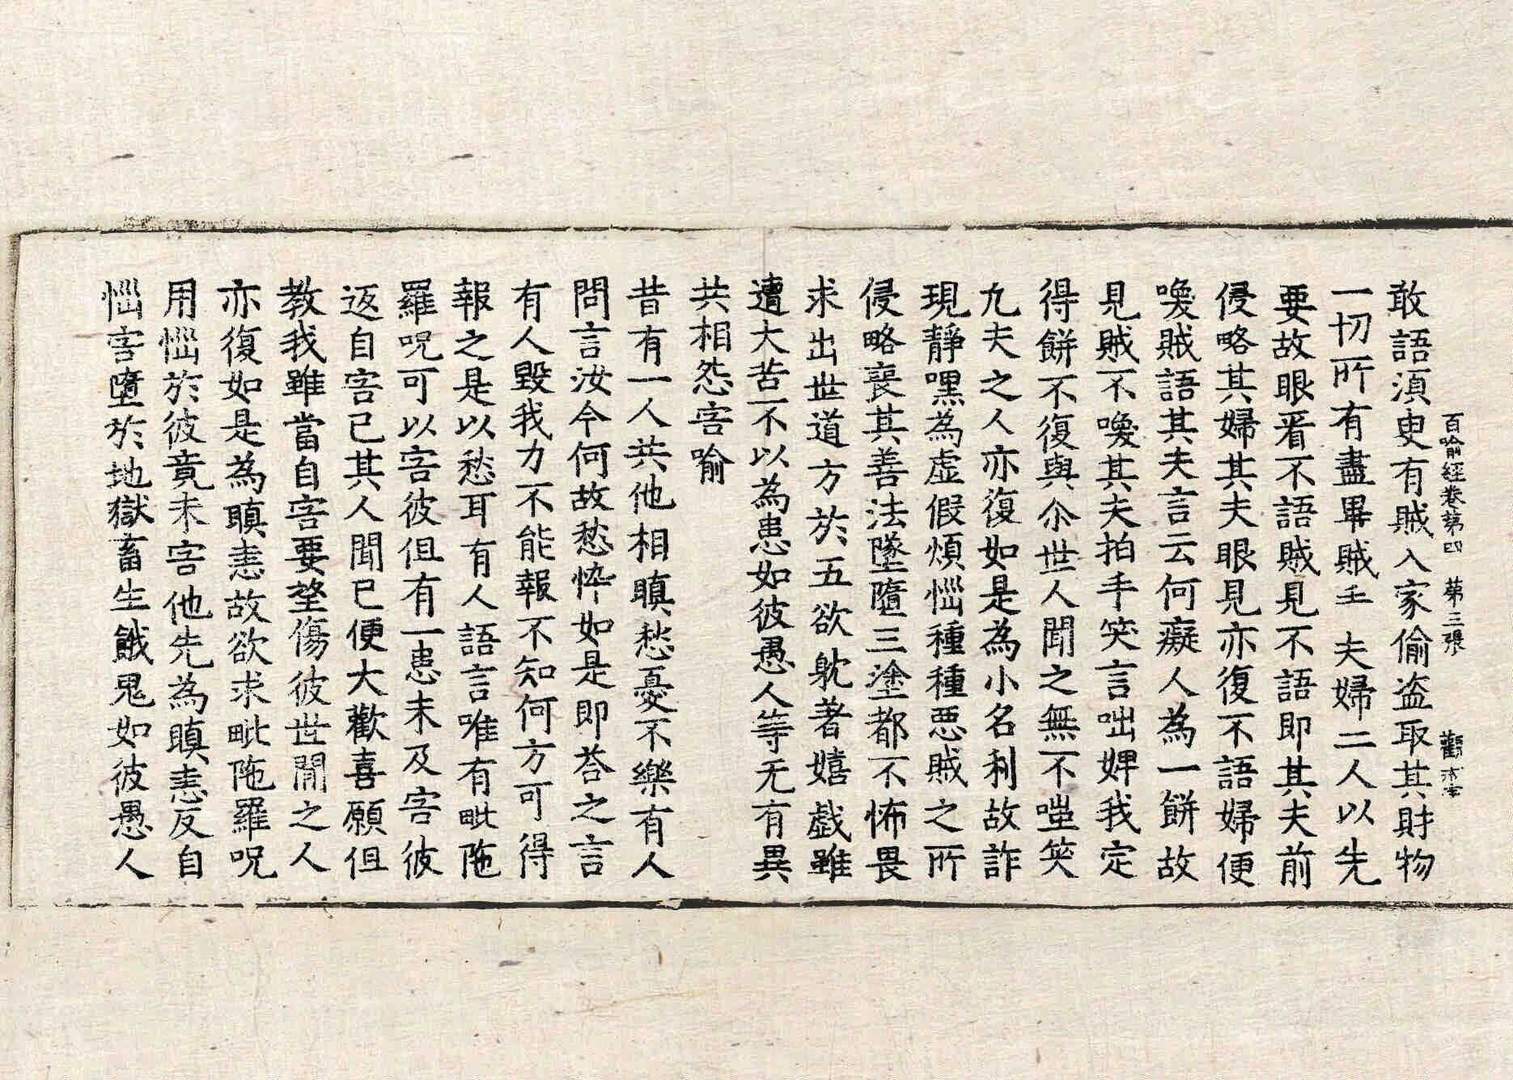 百喻經卷第四 第三張
敢語湏臾有賊入家偷盗取其財物
一切所有盡畢賊手夫婦二人以先
要故眼看不語賊見不語即其夫前
侵略其婦其夫眼見亦復不語婦便
喚賊語其夫言云何癡人為一餅故
見賊不喚其夫拍手笑言咄婢我定
得餅不復與尒世人聞之無不嗤笑
凡夫之人亦復如是為小名利故詐
現静嘿為虚假煩惱種種惡賊之所
侵略喪其善法墜墮三塗都不怖畏
求出世道方於五欲躭著嬉戯雖
遭大苦不以為患如彼愚人等无有異
共相怨害喻
昔有一人共他相瞋愁憂不樂有人
問言汝今何故愁悴如是即荅之言
有人毀我力不能報不知何方可得
報之是以愁耳有人語言唯有毗陁
羅呪可以害彼但有一患未及害彼
返自害已其人聞已便大歡喜願但
教我雖當自害要望傷彼世間之人
亦復如是為瞋恚故欲求毗陁羅呪
用惱於彼竟未害他先為瞋恚反自
惱害墮於地獄畜生餓鬼如彼愚人